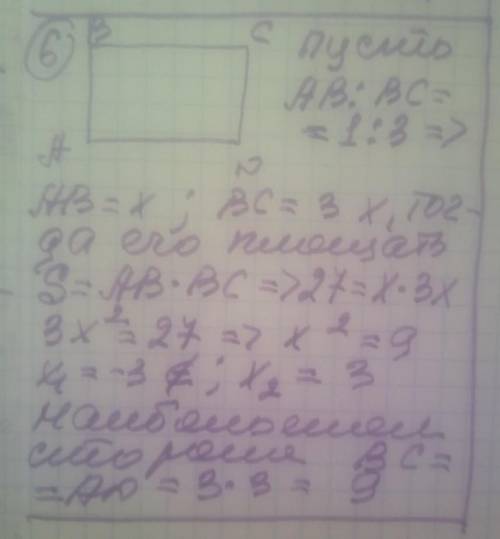 6 B C Пусть
AB : BC =
= 1 : 3 =>
A D
AB = x ; BC = 3 x, тог-
да его площадь
S = AB · BC => 27 = x · 3x
3x² = 27 => x² = 9
x₁ = -3 ; x₂ = 3
Наибольшая
сторона BC =
= AD = 3 · 3 = 9